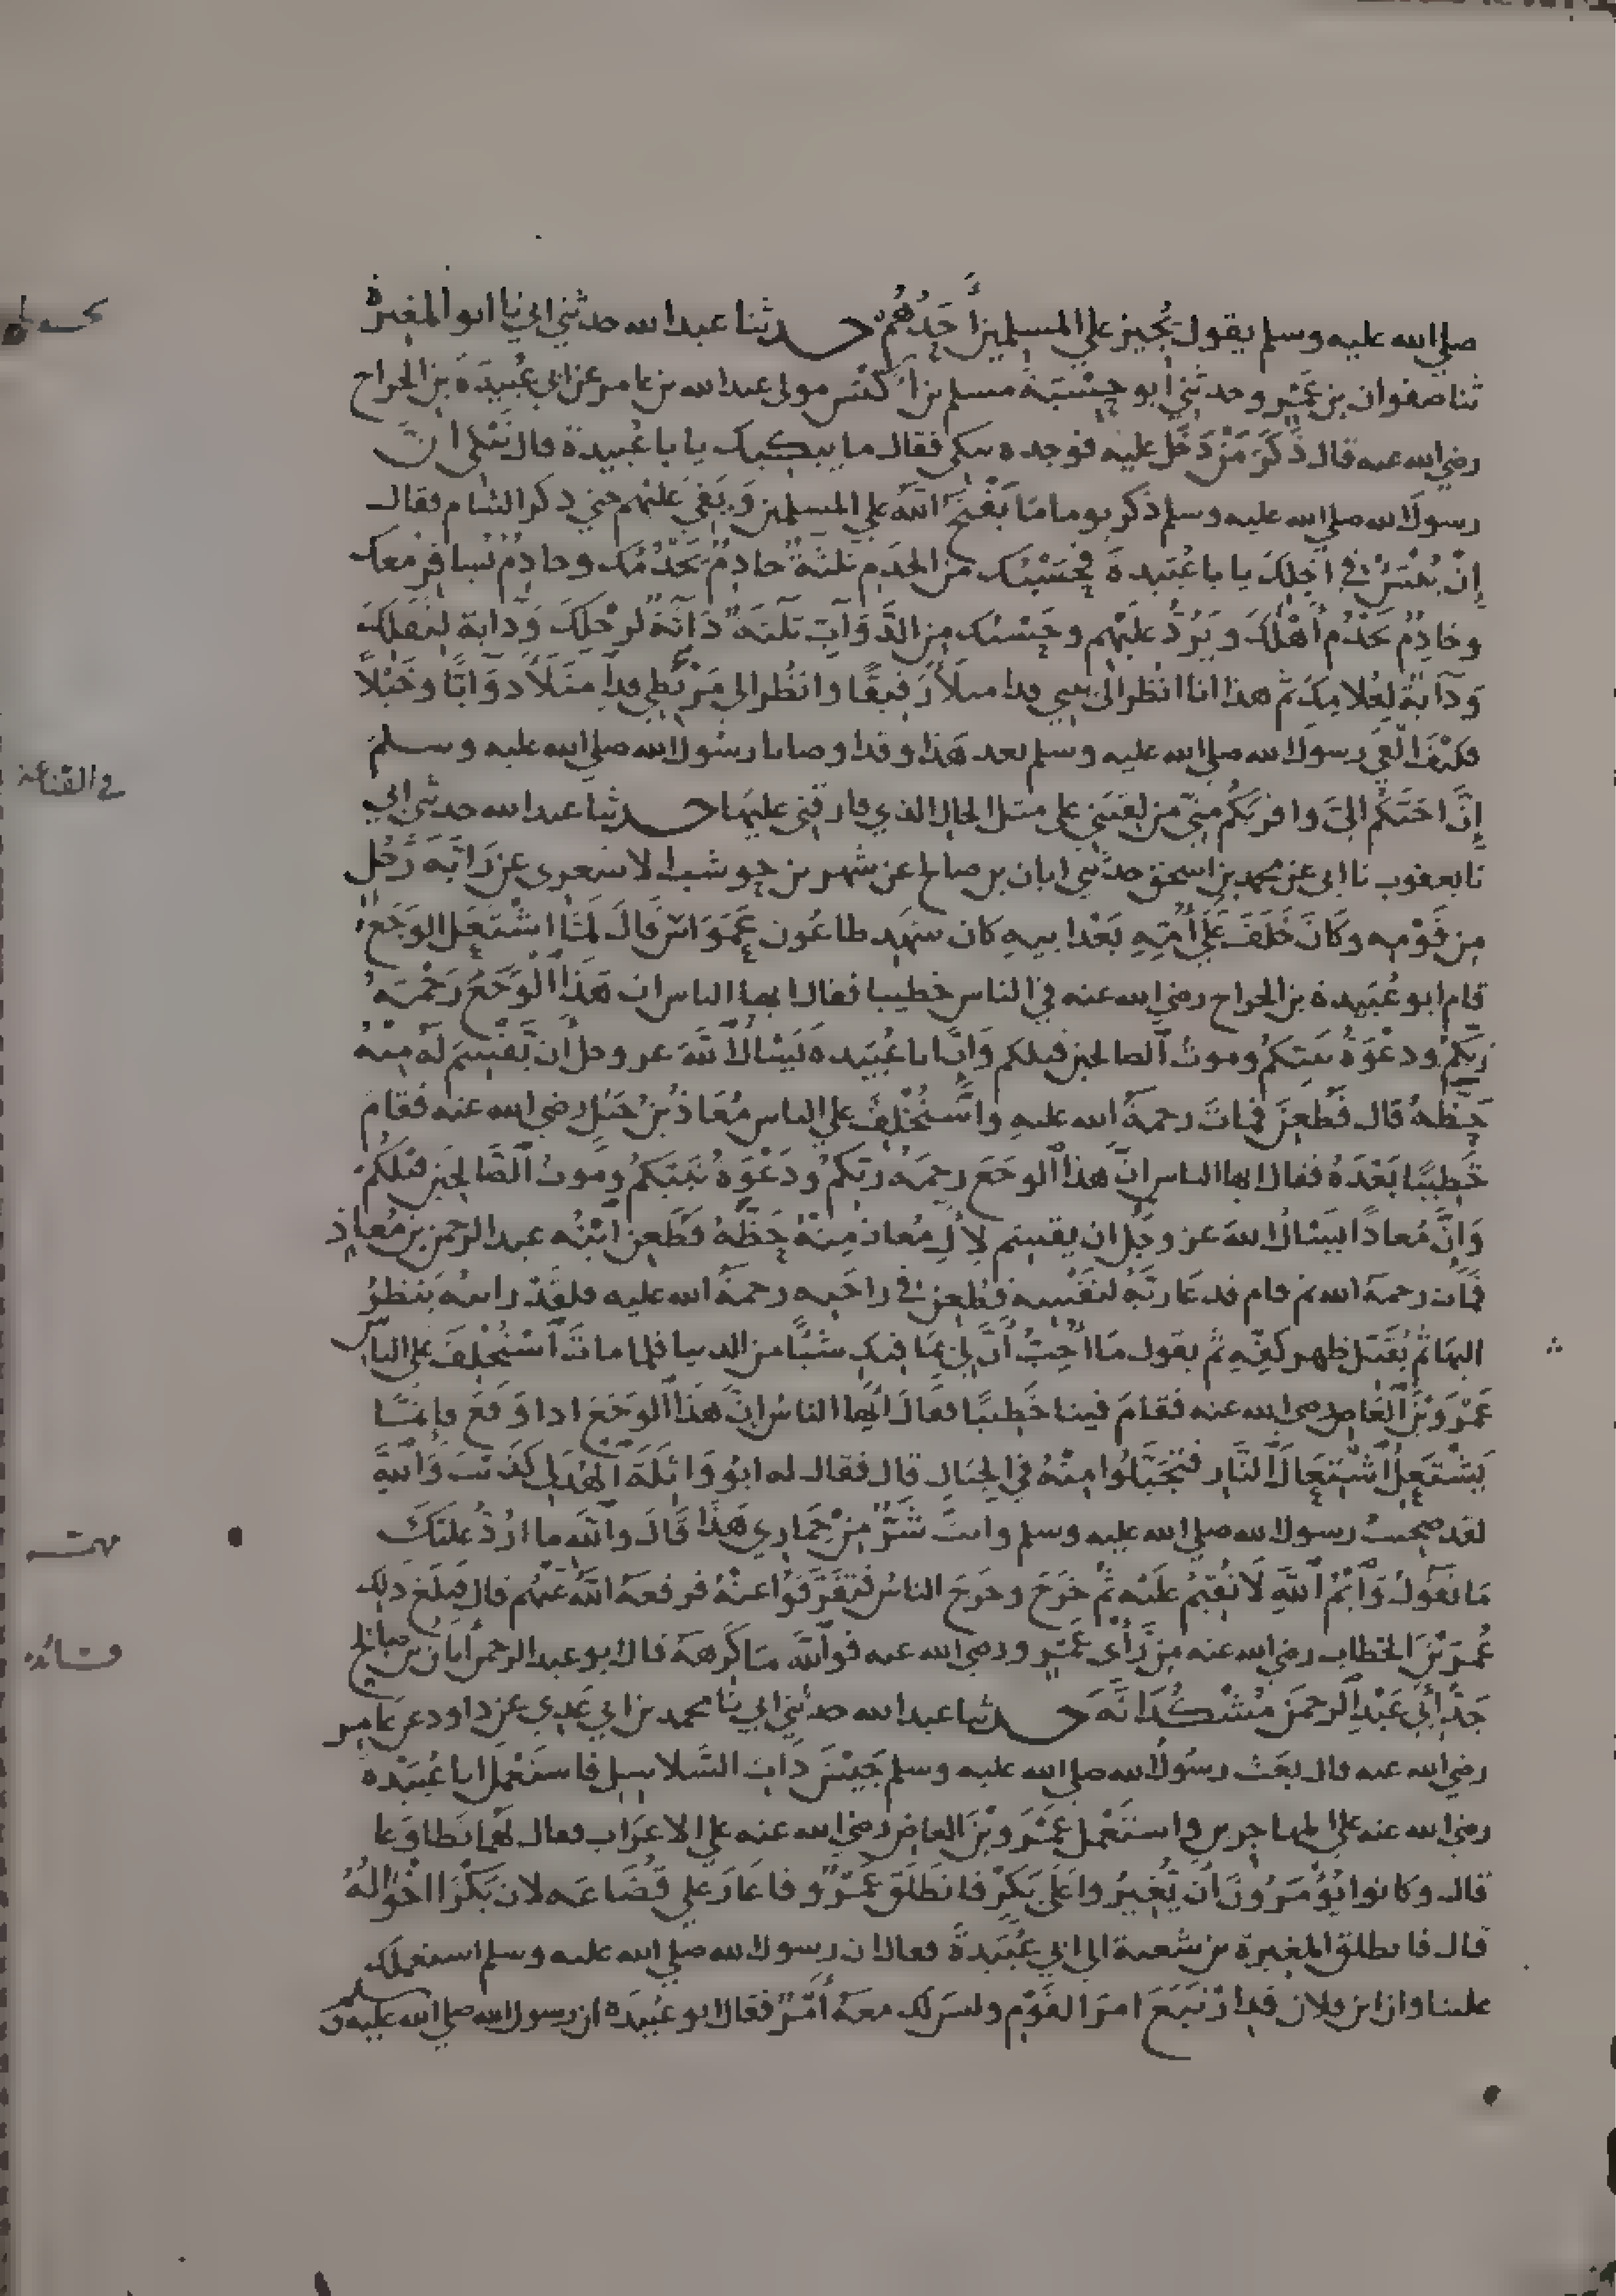 صلى الله عليه وسلم يقول يجير على المسلمين أحدهم حدثنا عبد الله حدثني ابي نا ابو المغيرة
ثنا صفوان بن عمرو حدثني أبو حسبة مسلم بن أكيس مولى عبد الله بن عامر عن ابي عبيدة بن الجراح
رضي الله عنه قال ذكر من دخل عليه فوجده يبكي فقال ما يبكيك يا با عبيدة قال نبكي أن
رسول الله صلى الله عليه وسلم ذكر يوما ما يفتح الله على المسلمين ويفي عليهم حتى ذكر الشام فقال
إن ينسأ في أجلك يا با عبيدة فحسبك من الخدم ثلثة خادم يخدمك وخادم يسافر معك
وخادم يخدم أهلك ويرد عليهم وحسبك من الدوآب ثلثة دآبة لرحلك ودآبة لثقلك
ودآبة لغلامك ثم هذا انا انظر الى بيتي قد امتلأ رقيقا وانظر الى مربطي قد امتلأ دوآبا وخيلا
فكيف القى رسول الله صلى الله عليه وسلم بعد هذا وقد اوصانا رسول الله صلى الله عليه وسلم
إن احبكم الي واقربكم مني من لقيني على مثل الحال الذي فارقني عليها حدثنا عبد الله حدثني ابي
نا يعقوب نا ابي عن محمد بن اسحق حدثني ابان بن صالح عن شهر بن حوشب الاشعري عن رابه رجل
من قومه وكان خلف على أمه بعد ابيه كان شهد طاعون عمواس قال لما اشتعل الوجع
قام ابو عبيدة بن الجراح رضي الله عنه في الناس خطيبا فقال ايها الناس ان هذا الوجع رحمة
ربكم ودعوة نبيكم وموت الصالحين قبلكم وان ابا عبيدة يسأل الله عز وجل أن يقسم له منه
حظه قال فطعن فمات رحمة الله عليه واستخلف على الناس معاذ بن جبل رضي الله عنه فقام
خطيبا بعده فقال ايها الناس ان هذا الوجع رحمة ربكم ودعوة نبيكم وموت الصالحين قبلكم
وان معاذا يسأل الله عز وجل ان يقسم لآل معاذ منه حظه فطعن ابنه عبد الرحمن بن معاذ
فمات رحمة الله ثم قام فدعا ربه لنفسه فطعن في راحته رحمة الله عليه فلقد رايته ينظر
اليها ثم يقبل ظهر كفه ثم يقول ما احب أن لي بما فيك شيئا من الدنيا فلما مات استخلف على الناس
عمرو بن العاص رضي الله عنه فقام فينا خطيبا فقال أيها الناس ان هذا الوجع اذا وقع فإنما
يشتعل اشتعال النار فتجبلوا منه في الجبال قال فقال له ابو واثلة الهذلي كذبت والله
لقد صحبت رسول الله صلى الله عليه وسلم وانت شر من حماري هذا قال والله ما ارد عليك
ما تقول وأيم الله لا نقيم عليه ثم خرج وخرج الناس فتفرقوا عنه فرفعه الله عنهم قال فبلغ ذلك
عمر بن الخطاب رضي الله عنه من رأى عمرو رضي الله عنه فوالله ما كرهه قال ابو عبد الرحمن أبان بن صالح
جد أبي عبد الرحمن مشكدانه حدثنا عبد الله حدثني ابي نا محمد بن ابي عدي عن داود عن عامر
رضي الله عنه قال بعث رسول الله صلى الله عليه وسلم جيش ذات السلاسل فاستعمل ابا عبيدة
رضي الله عنه على المهاجرين واستعمل عمرو بن العاص رضي الله عنه على الاعراب فقال لهما تطاوعا
قال وكانوا يؤمرون أن يغيروا على بكر فانطلق عمرو فاغار على قضاعه لان بكرا اخواله
قال فانطلق المغيرة بن شعبة الى ابي عبيدة فقال ان رسول الله صلى الله عليه وسلم استعملك
علينا وان ابن فلان قد ارتبع امر القوم وليس لك معه أمر فقال ابو عبيدة ان رسول الله صلى الله عليه وسلم
في القناعة